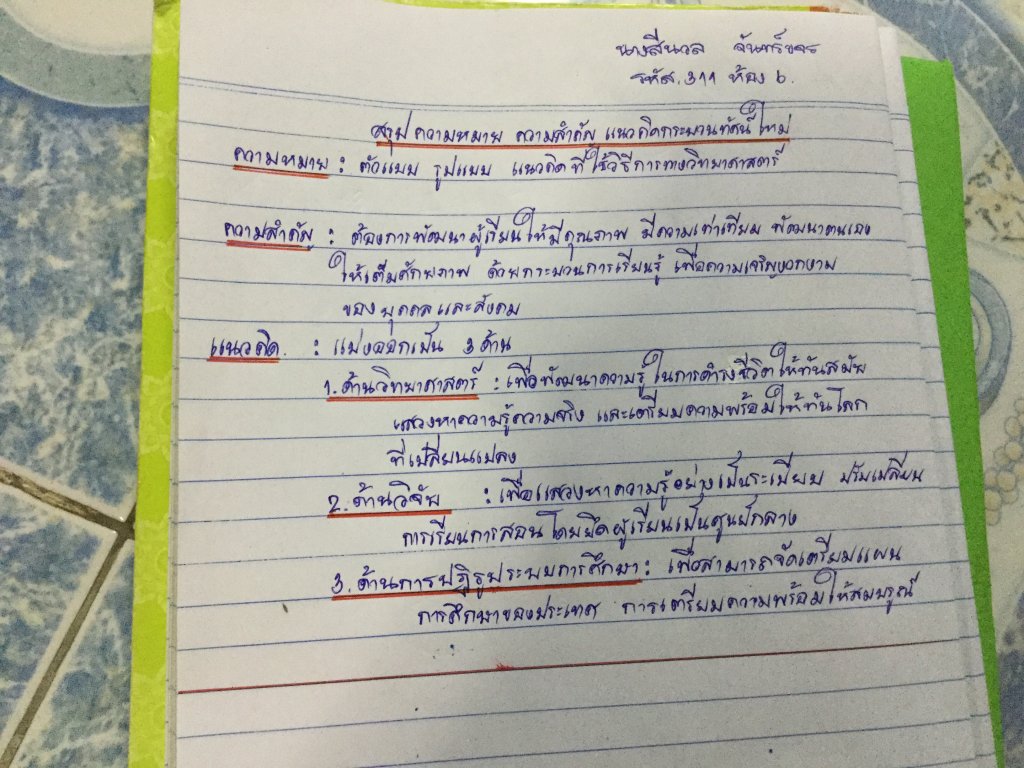 นางสีนวล จันทร์ขจร
รหัส.311 ห้อง 6.
สรุปความหมาย ความสำคัญ แนวคิดกระบวนทัศน์ใหม่
ความหมาย : ตัวแบบ รูปแบบ แนวคิดที่ใช้วิธีการทางวิทยาศาสตร์
ความสำคัญ : ต้องการพัฒนาผู้เรียนให้มีคุณภาพ มีความเท่าเทียม พัฒนาตนเอง
ให้เต็มศักยภาพ ด้วยกระบวนการเรียนรู้ เพื่อความเจริญงอกงาม
ของบุคคลและสังคม
แนวคิด. : แบ่งออกเป็น 3 ด้าน
1.ด้านวิทยาศาสตร์ : เพื่อพัฒนาความรู้ในการดำรงชีวิตให้ทันสมัย
แสวงหาความรู้ความจริง และเตรียมความพร้อมให้ทันโลก
ที่เปลี่ยนแปลง
2.ด้านวิจัย : เพื่อแสวงหาความรู้อย่างเป็นระเบียบ ปรับเปลี่ยน
การเรียนการสอนโดยยึดผู้เรียนเป็นศูนย์กลาง
3.ด้านการปฏิรูประบบการศึกษา : เพื่อสามารถจัดเตรียมแผน
การศึกษาของประเทศ การเตรียมความพร้อมให้สมบรูณ์